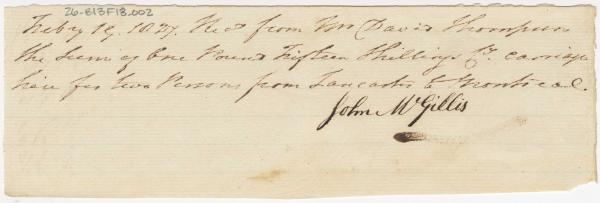 26-B13F18.002
Feby 19. 1827. Recd from Mr David Thompson
the Sum of One Pound Fifteen Shillings Cy. carriage
hire for two Persons from Lancaster to Montreal.
John McGillis